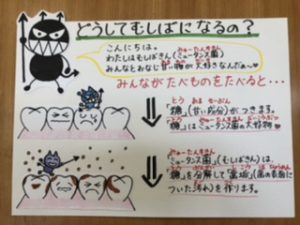 どうしてむしばになるの？
こんにちは。
わたしはむしばきん（ミュータンス菌）
みんなとおなじ甘い物が大好きなんだぁ〜♥
みんながたべものをたべると…
「糖」（甘い成分）がつきます。
「糖」はミュータンス菌の大好物
「ミュータンス菌」（むしばきん）は、
「糖」を分解して「歯垢」（歯の表面に
ついた汚れ）を作ります。